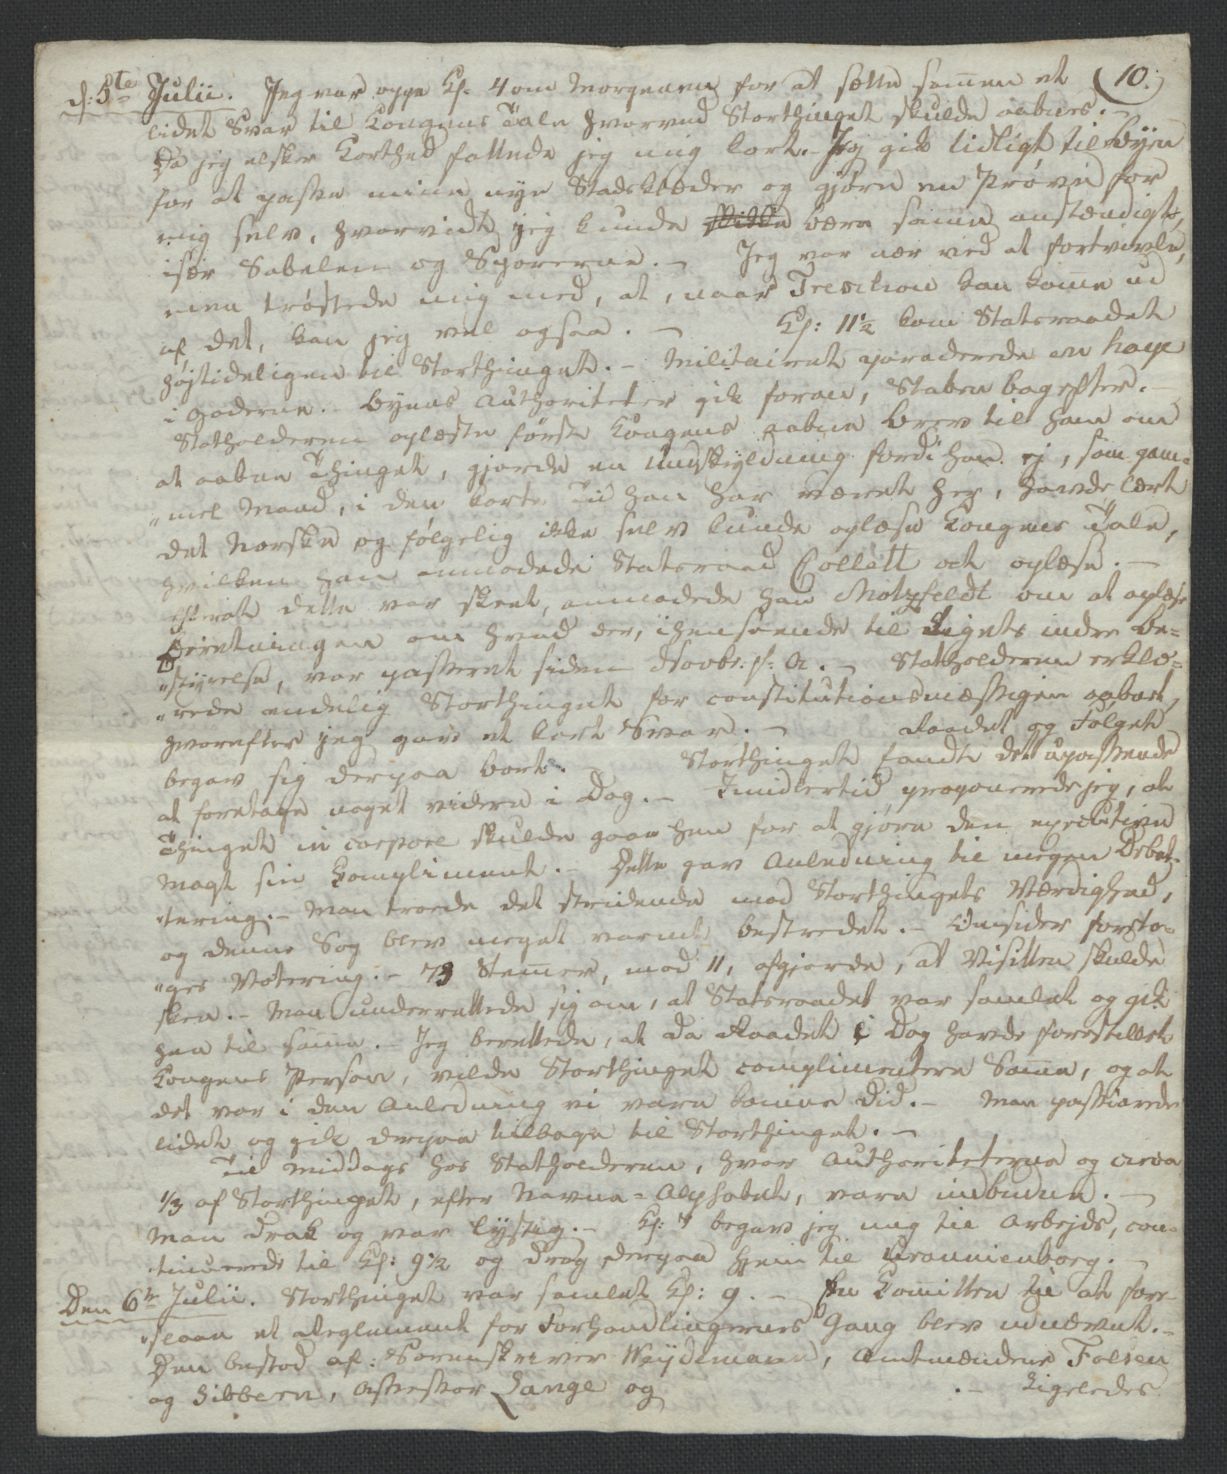 10.
d: 5te Julii. Jeg var oppe Kl. 4 om Morgenen for at sætte sammen et
lidet Svar til Kongens Tale hvorved Storthinget skulde aabnes. –
Da jeg elsker Korthed fattede jeg mig kort. – Jeg gik tidligt til Byen
for at passe mine nye Stadsklæder og gjøre en Prøve for
mig selv, hvorvidt jeg kunde bære samme anstændigt,
især Sabelen og Sporerne. – Jeg var nær ved at fortvivle,
men trøstede mig med, at, naar Treschow kan komme ud
af det, kan jeg vel ogsaa. – Kl: 11½ kom Statsraadet
højtideligen til Storthinget. – Militairet paraderede en haye
i Gaderne. – Byens Authoriteter gik foran, Staben bagefter. –
Statholderen oplæste først Kongens aabne Brev til ham om
at aabne Thinget, gjorde en Undskyldning fordi han ej, som gam=
"mel Mand, i den korte Tid han har været her, havde lært
det Norske og følgelig ikke selv kunde oplæse Kongens Tale,
hvilken han anmodede Statsraad Collett at oplæse. –
efterat dette var skeet, anmodede han Motzfeldt om at oplæse
Beretningen om hvad der, i henseende til Rigets indre Be=
"styrelse, var passeret siden Novbr: f: A. – Statholderen erklæ=
"rede endelig Storthinget for constitutionsmæssigen aabnet,
hvorefter jeg gav et kort Svar. – Raadet og Følget
begav sig derpaa bort. – Storthinget fandt det upassende
at foretage noget videre i Dag. – Imidlertid proponerede jeg, at
Thinget in corpore skulde gaae hen for at gjøre den executive
Magt sin Compliment. – Dette gav Anledning til megen Debat=
"tering. – Man troede det stridende mod Storthingets Værdighed,
og denne Sag blev meget varmt bestredet. – Omsider foreto=
"ges Votering. – 73 Stemmer, mod 11, afgjorde, at Visitten skulde
skee. – Man underrettede sig om, at Statsraadet var samlet og gik
hen til samme. – Jeg berettede, at da Raadet i Dag havde forestillet
Kongens Person, vilde Storthinget complimentere Samme, og at
det var i den Anledning vi vare komne did. – Man passiarede
lidet og gik derpaa tilbage til Storthinget. –
Til Middags hos Statholderen, hvor Authoriteterne og circa
1/3 af Storthinget, efter Navne=Alphabet, vare indbudne. –
Man drak og var lystig. – Kl: 7 begav jeg mig til Arbejds, con=
"tinuerede til Kl: 9½ og drog derpaa hjem til Uranienborg. –
Den 6te Julii. Storthinget var samlet Kl: 9. – En Comitee til at fore=
"slaae et Reglement for Forhandlingernes Gang blev udnævnt. –
Den bestod af: Sorenskriver Weydemann, Amtmændene Falsen
og Sibbern, Assessor Lange og . – Ligeledes